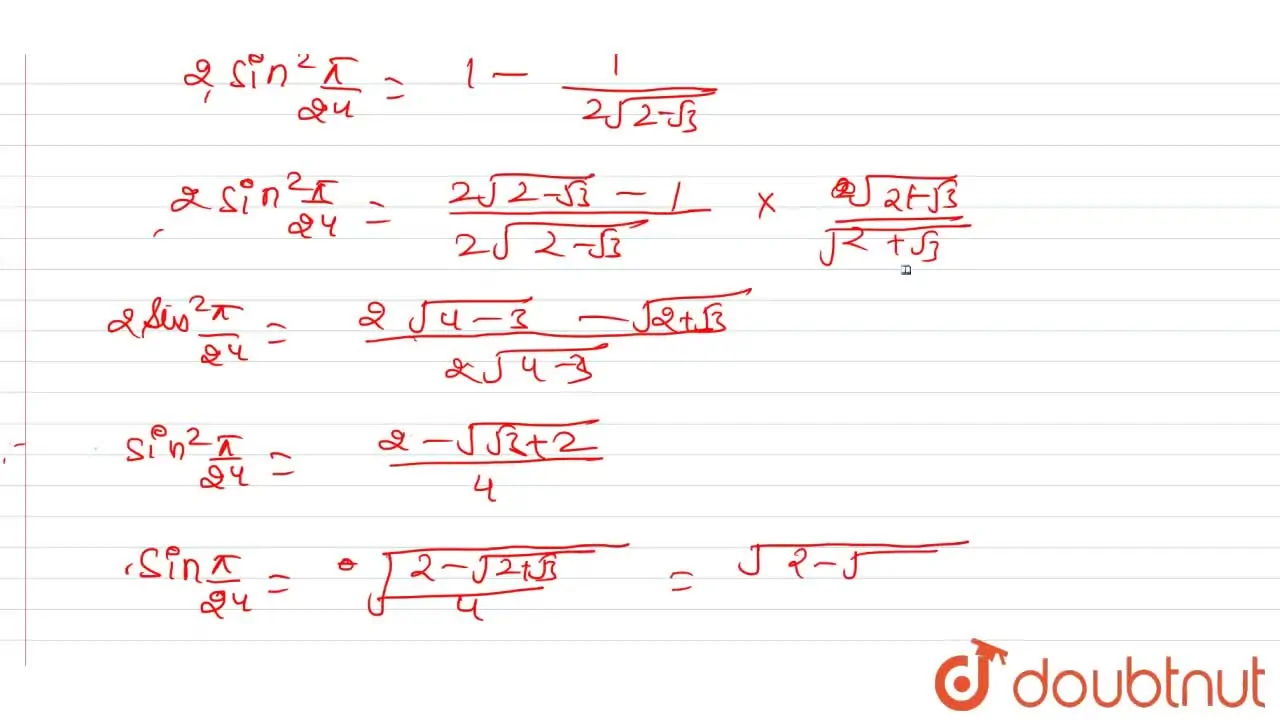 2 sin² π/24 = 1 − 1/(2√(2−√3))
2 sin² π/24 = (2√(2−√3) − 1)/(2√(2−√3)) × √(2+√3)/√(2+√3)
2 sin² π/24 = (2√(4−3) − √(2+√3))/(2√(4−3))
sin² π/24 = (2 − √(√3+2))/4
sin π/24 = √((2 − √(2+√3))/4) = √(2 − √
doubtnut